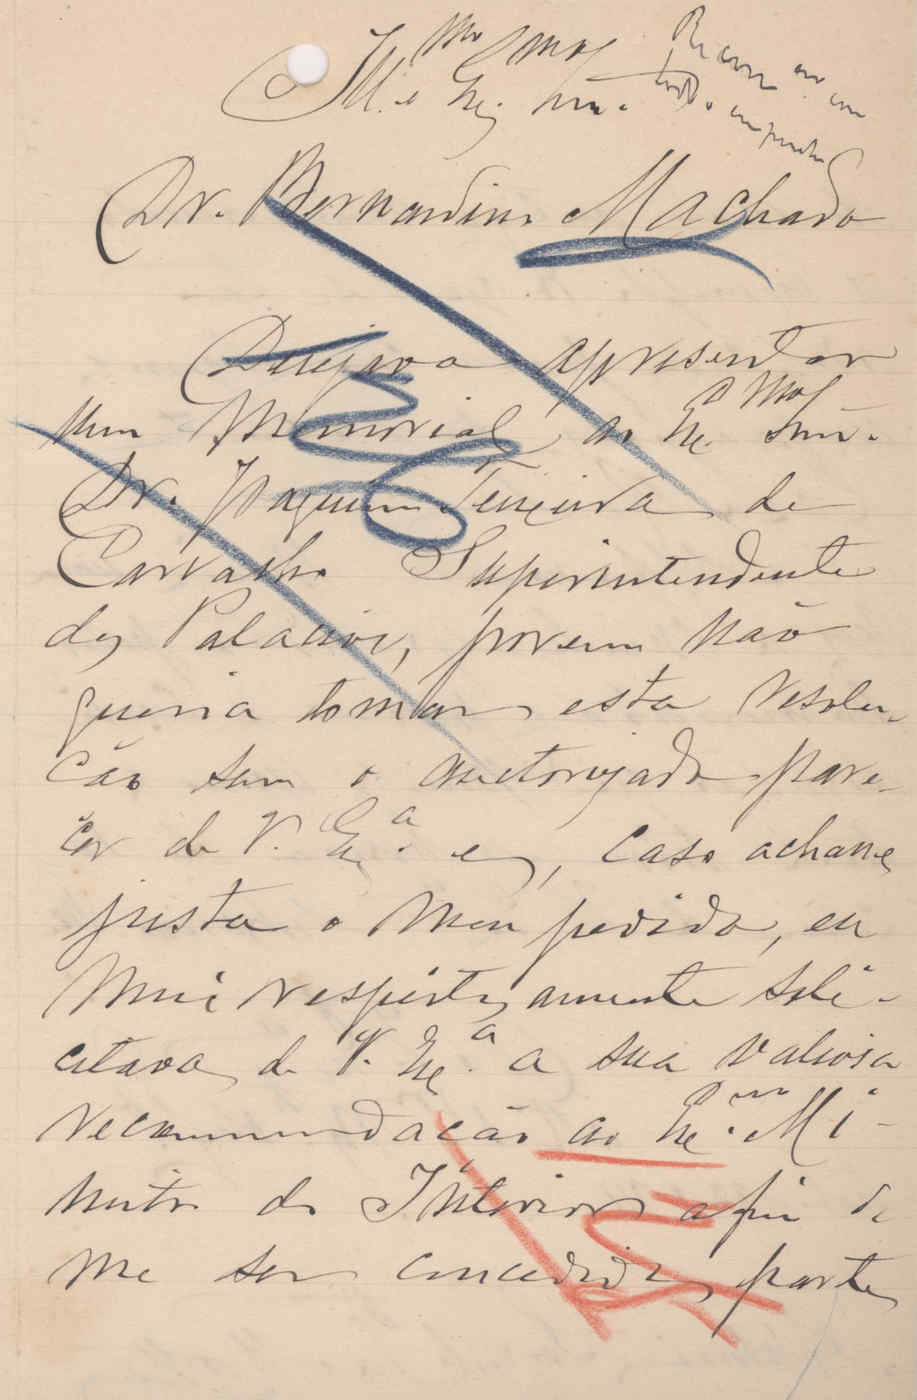 Ill.mo e Ex.mo Snr.
Dr. Bernardino Machado
Desejava apresentar
um Memorial ao Ex.mo Snr.
Dr. Joaquim Teixeira de
Carvalho Superintendente
dos Palacios, porem não
queria tomar esta resolu-
ção sem o auctorizado pare-
cer de V. Ex.a e, caso achasse
justo o meu pedido, eu
mui respeitosamente soli-
citava de V. Ex.a a sua valiosa
recommendação ao Ex.mo Mi-
nistro do Interior afim de
me ser concedida parte